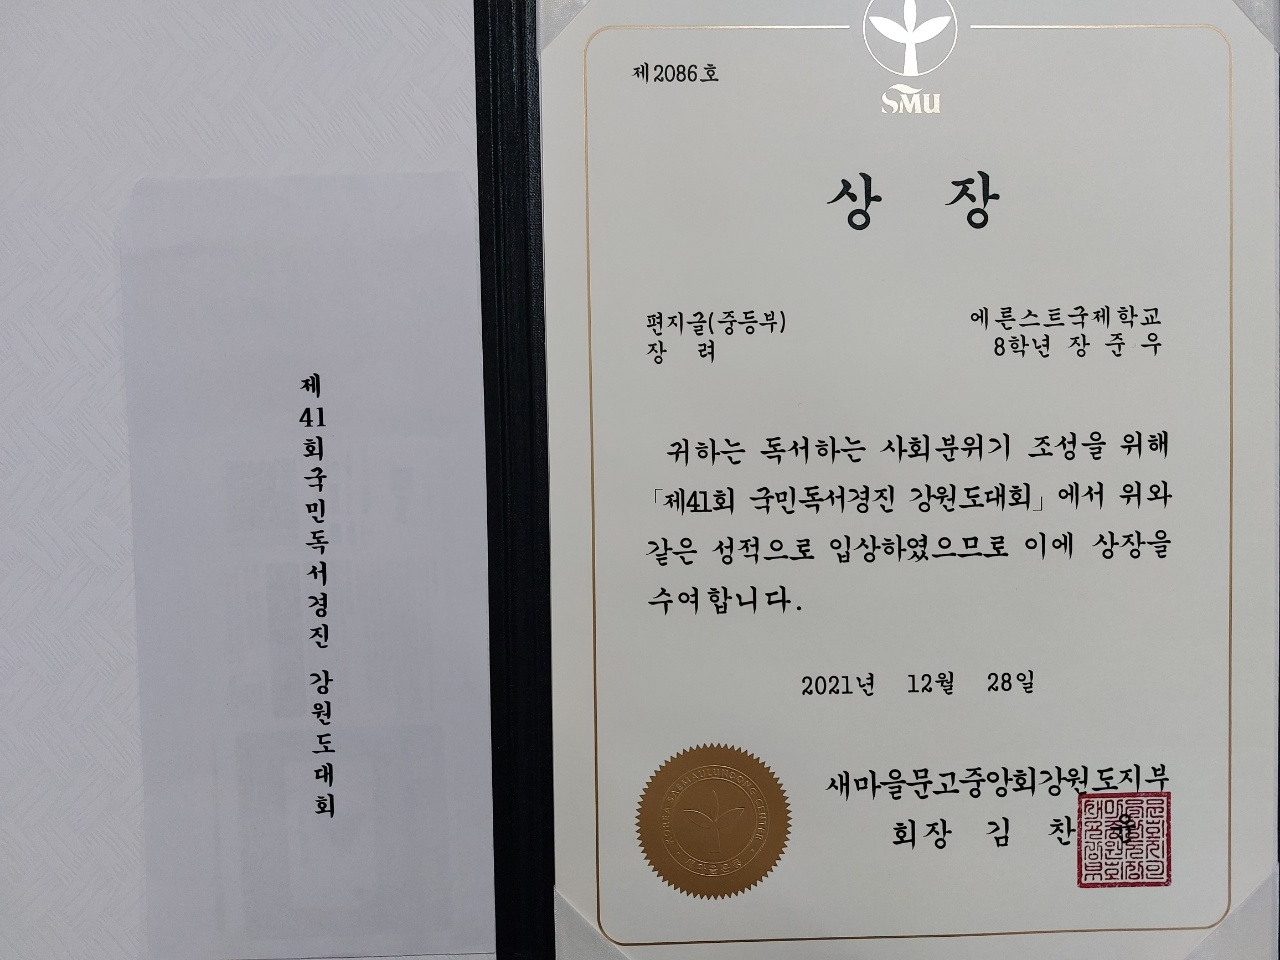 제41회국민독서경진 강원도대회
제2086호
SMU
상 장
편지글(중등부)
장 려
에른스트국제학교
8학년 장 준 우
귀하는 독서하는 사회분위기 조성을 위해
「제41회 국민독서경진 강원도대회」에서 위와
같은 성적으로 입상하였으므로 이에 상장을
수여합니다.
2021년 12월 28일
KOREA SAEMAULUNDONG CENTER
새마을운동
새마을문고중앙회강원도지부
회장 김 찬